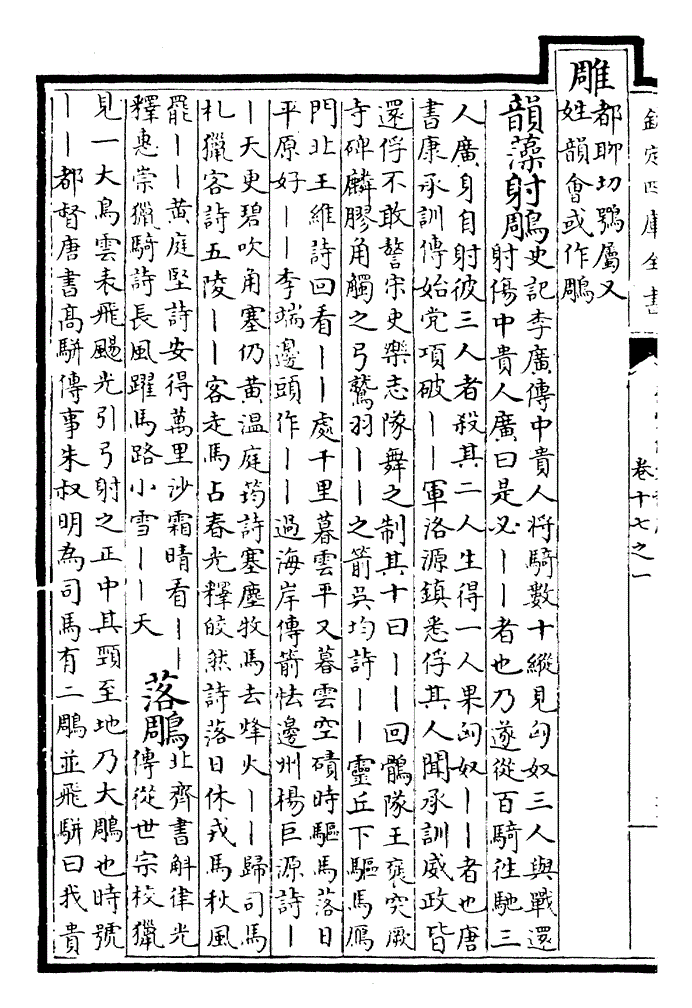 欽定四庫全書
卷十七之一
雕
都聊切鶚屬又
姓韻會或作鵰
韻藻射鵰
史記李廣傳中貴人將騎數十縱見匈奴三人與戰還
射傷中貴人廣曰是必丨丨者也乃遂從百騎徃馳三
人廣身自射彼三人者殺其二人生得一人果匈奴丨丨者也唐
書康承訓傳始党項破丨丨軍洛源鎮悉俘其人聞承訓威政皆
還俘不敢警宋史樂志隊舞之制其十曰丨丨回鶻隊王襃突厥
寺碑麟膠角觸之弓鷲羽丨丨之箭吳均詩丨丨靈丘下驅馬鴈
門北王維詩回看丨丨處千里暮雲平又暮雲空磧時驅馬落日
平原好丨丨李端邊頭作丨丨過海岸傳箭怯邊州楊巨源詩丨
丨天更碧吹角塞仍黃温庭筠詩塞塵牧馬去烽火丨丨歸司馬
札獵客詩五陵丨丨客走馬占春光釋皎然詩落日休戎馬秋風
罷丨丨黃庭堅詩安得萬里沙霜晴看丨丨
釋惠崇獵騎詩長風躍馬路小雪丨丨天
落鵰
北齊書斛律光
傳從世宗校獵
見一大鳥雲表飛颺光引弓射之正中其頸至地乃大鵰也時號
丨丨都督唐書高駢傳事朱叔明為司馬有二鵰並飛駢曰我貴